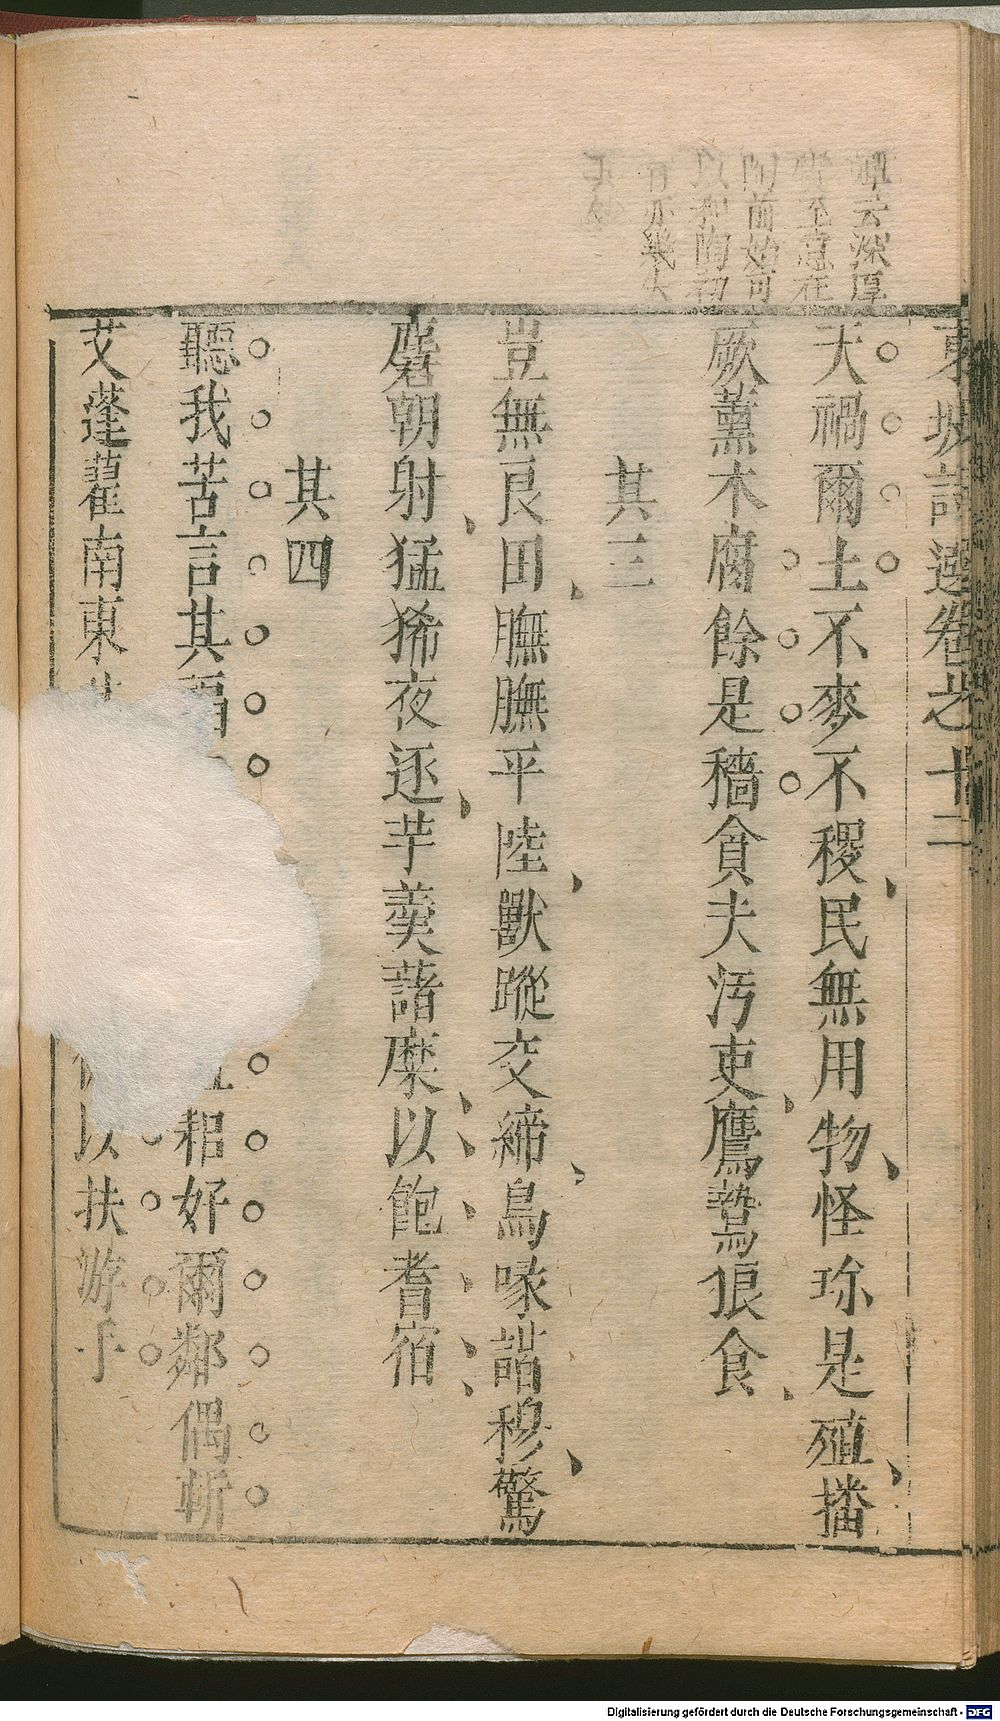 東坡詩選卷之十二
天禍爾土不麥不稷民無用物怪珍是殖播
厥薰木腐餘是穡貪夫汚吏鷹鷙狼食
其三
豈無良田膴膴平陸獸蹤交締鳥喙諧穆驚
麏朝射猛豨夜逐芋羹藷糜以飽耆宿
其四
聽我苦言其福
耜好爾鄰偶斬
艾蓬藋南東
以扶游手
譚云深厚
至意在
陶前始可
以和陶初
Digitalisierung gefördert durch die Deutsche Forschungsgemeinschaft - DFG